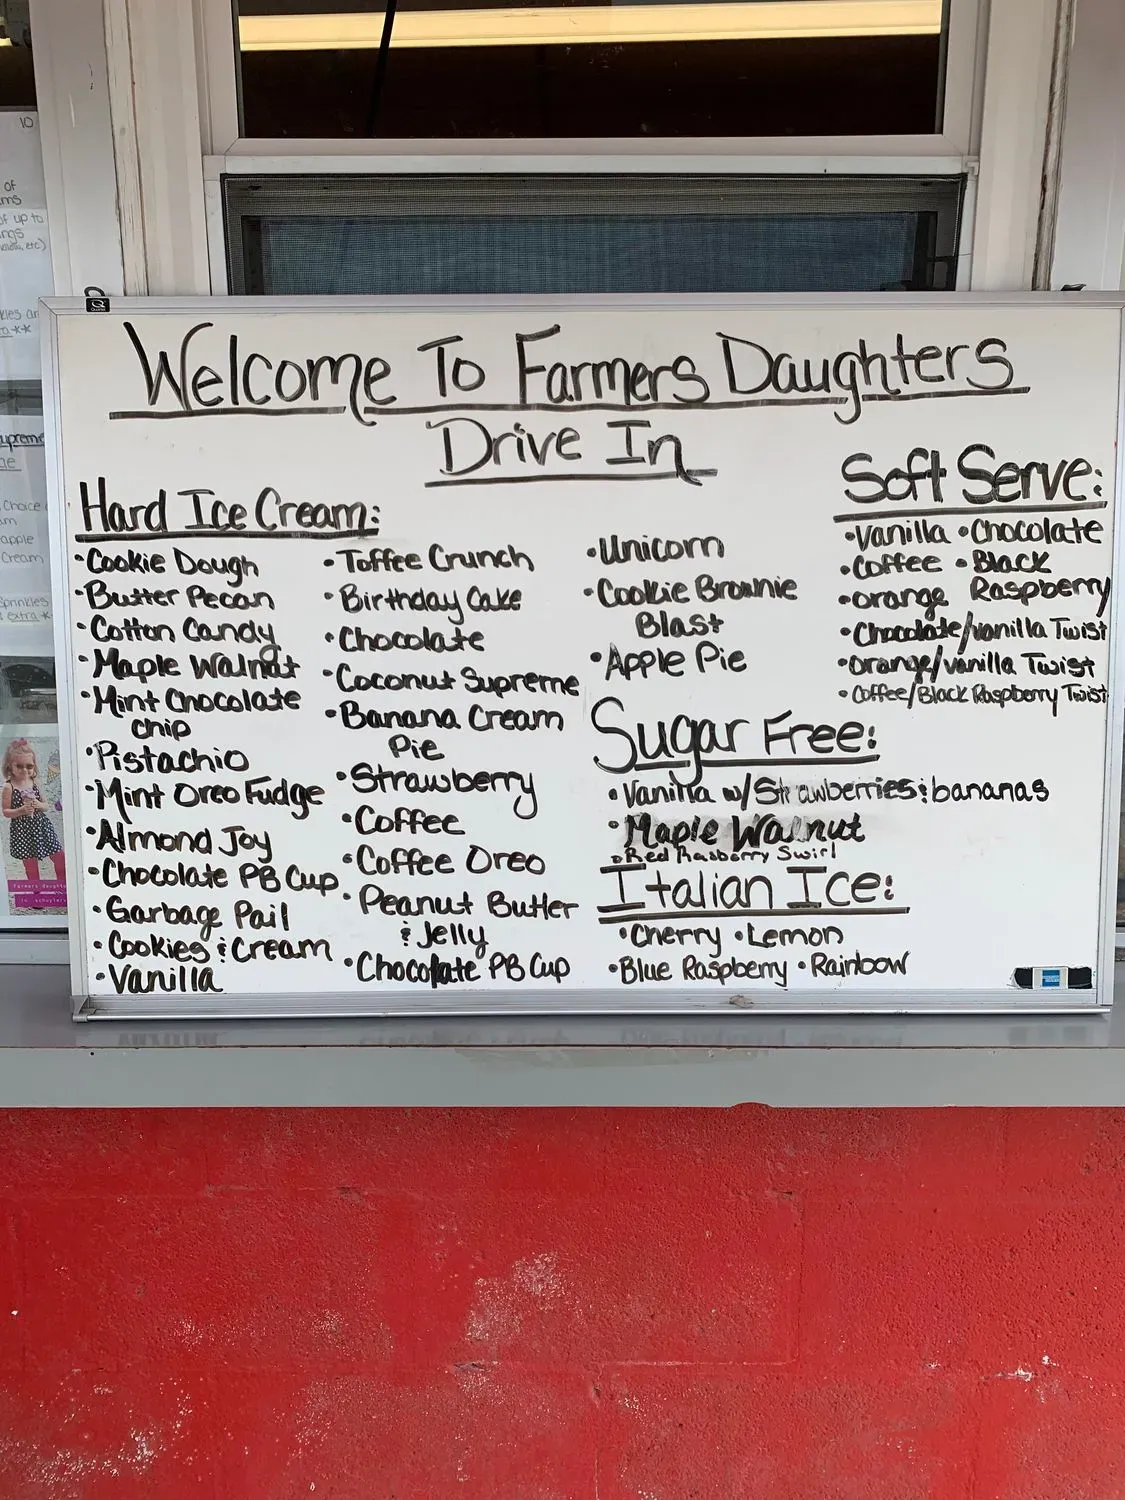 Welcome To Farmers Daughters
Drive In
Hard Ice Cream:
• Cookie Dough
• Butter Pecan
• Cotton Candy
• Maple Walnut
• Mint Chocolate
chip
• Pistachio
• Mint Oreo Fudge
• Almond Joy
• Chocolate PB Cup
• Garbage Pail
• Cookies & Cream
• Vanilla
• Toffee Crunch
• Birthday Cake
• Chocolate
• Coconut Supreme
• Banana Cream
Pie
• Strawberry
• Coffee
• Coffee Oreo
• Peanut Butter
& Jelly
• Chocolate PB Cup
• Unicorn
• Cookie Brownie
Blast
• Apple Pie
Soft Serve:
• Vanilla • Chocolate
• Coffee • Black
• Orange Raspberry
• Chocolate/vanilla Twist
• Orange/vanilla Twist
• Coffee/Black Raspberry Twist
Sugar Free:
• Vanilla w/ Strawberries & bananas
• Maple Walnut
• Red Rasberry Swirl
Italian Ice:
• Cherry • Lemon
• Blue Raspberry • Rainbow
10
of
of up to
etc)
Choice
apple
Cream
extra